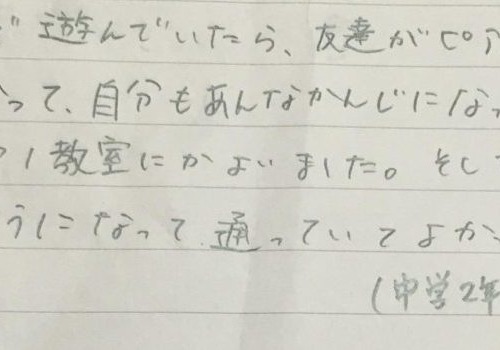 遊んでいたら、友達がピア
って、自分もあんなかんじになっ
ノ教室にかよいました。そして
うになって通っていてよか
(中学2年